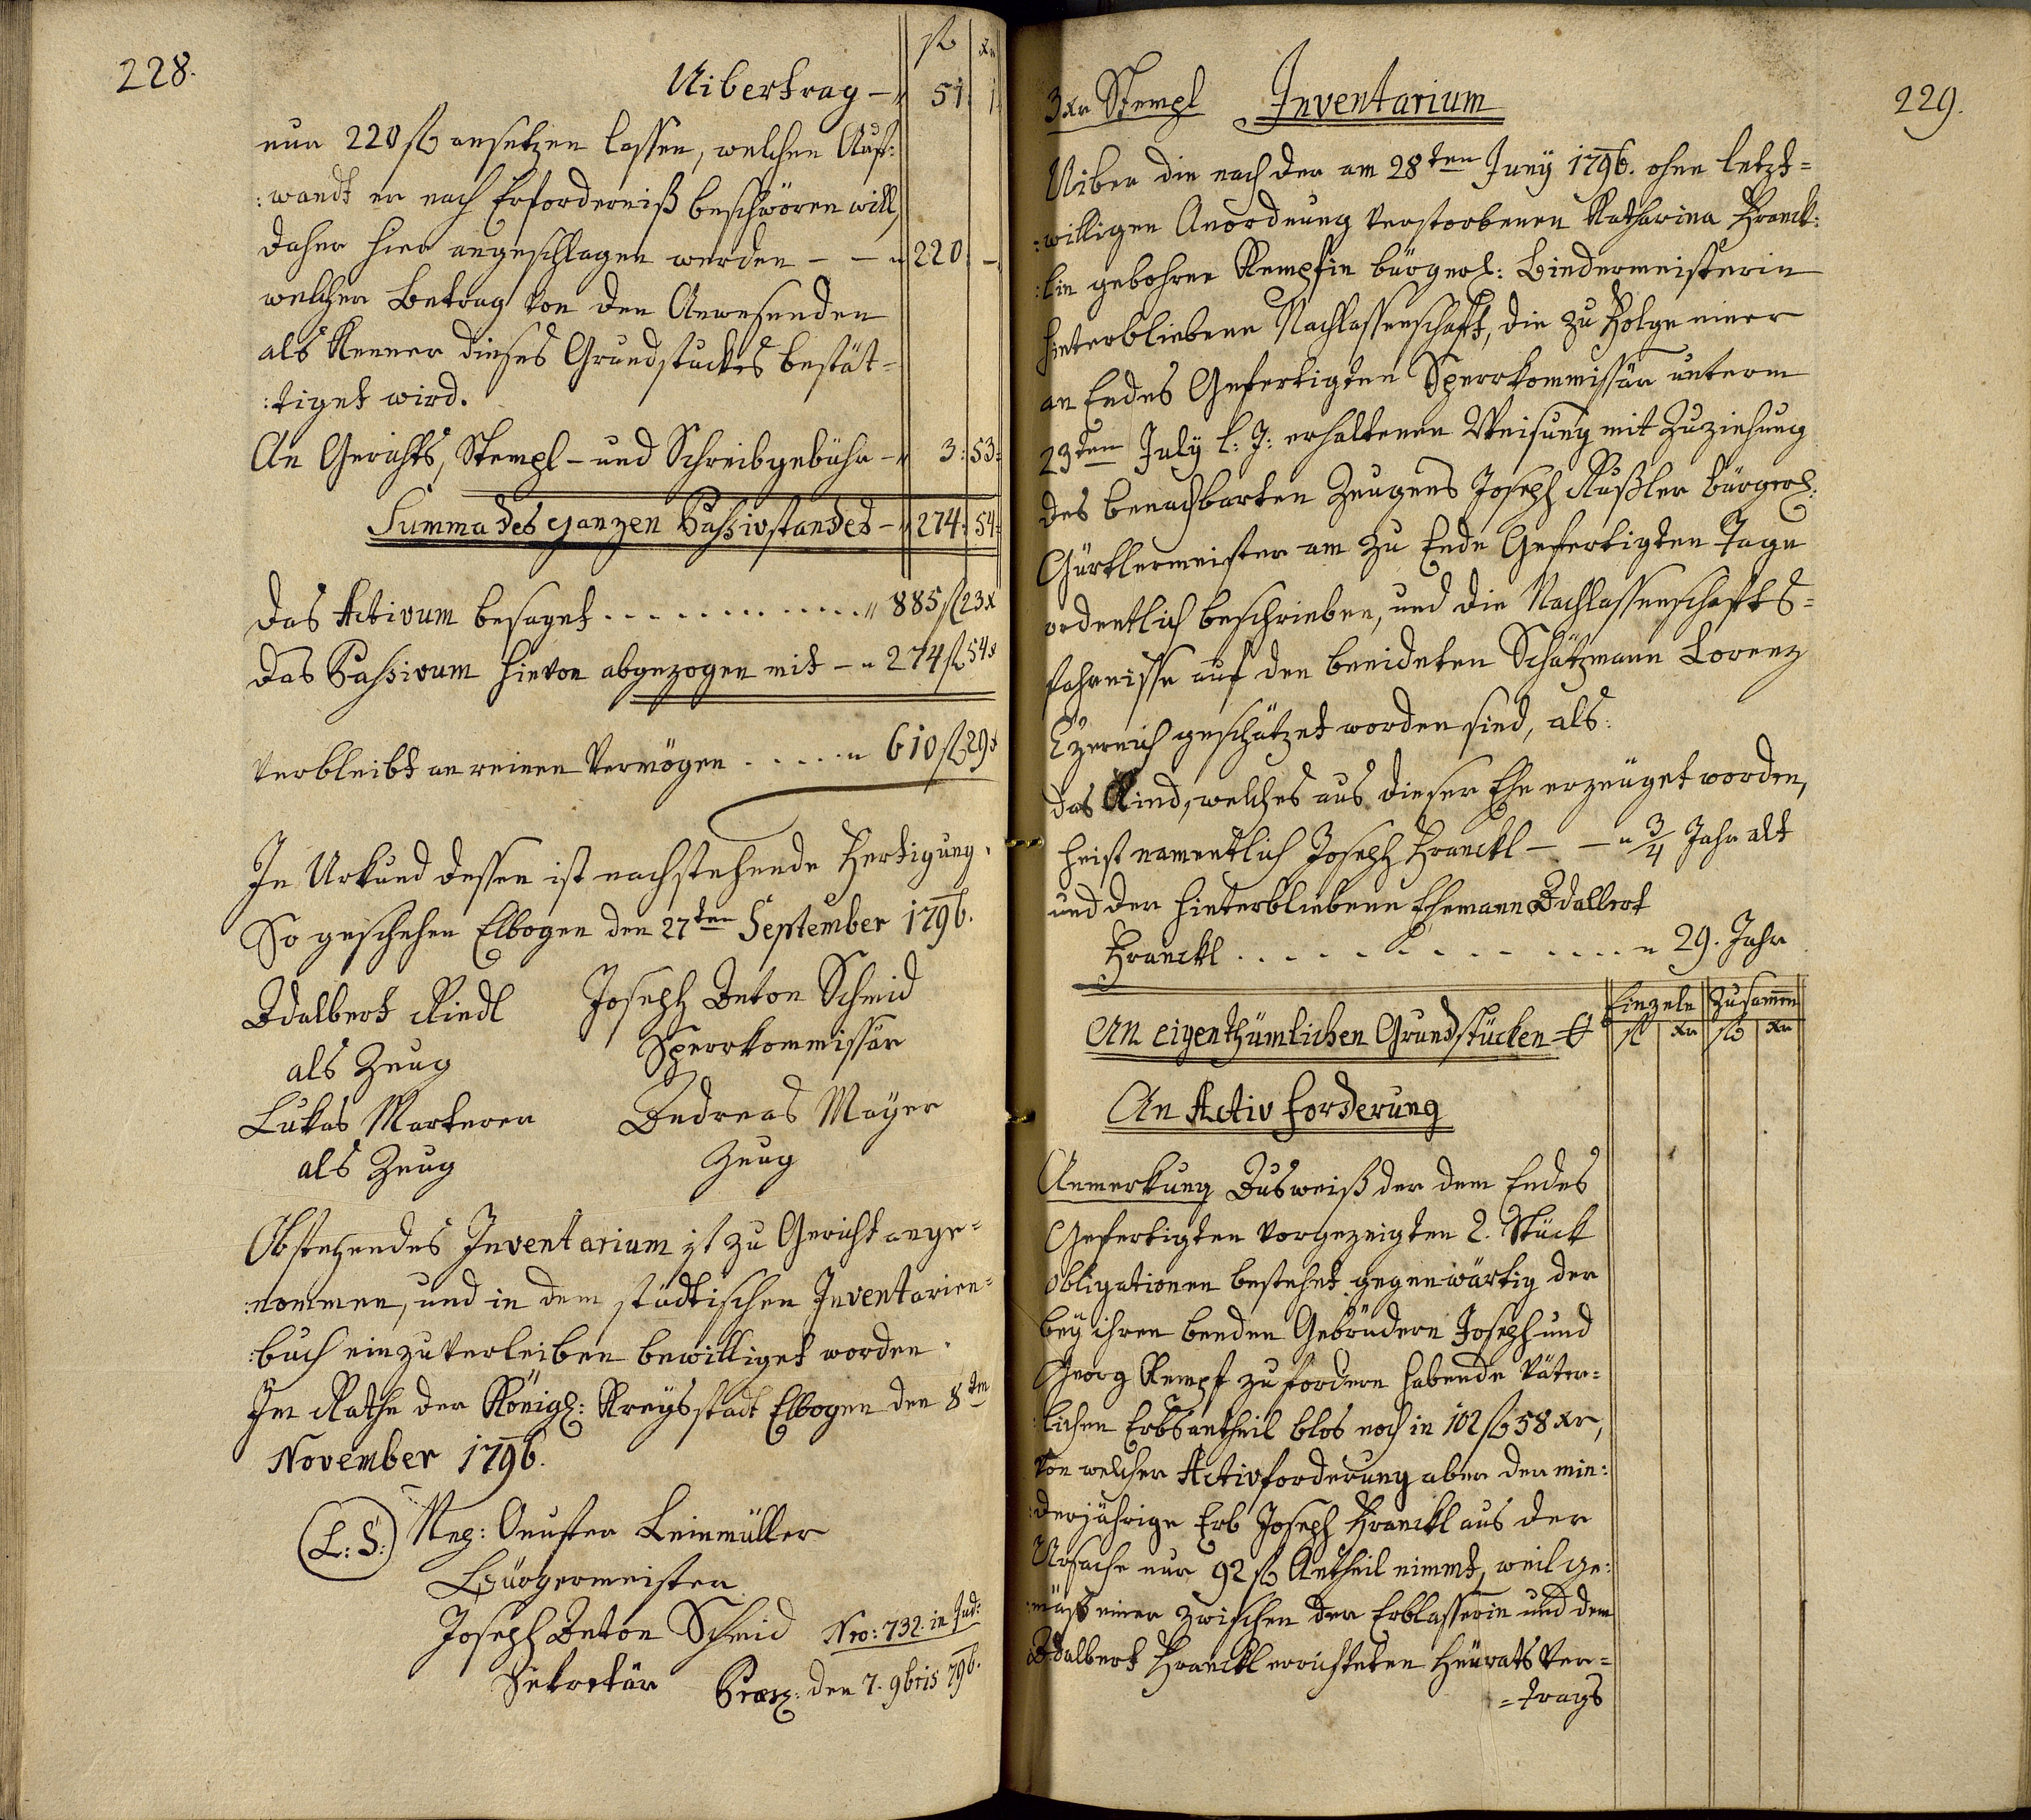 228.
fl xr
Uibertrag — " 51. 1.
nur 220 fl ansetzen lassen, welchen Auf:
:wandt er nach Erforderniß beschwören will,
daher hier angeschlagen werden - - " 220. -.
welcher Betrag von den Anwesenden
als Kenner dieses Grundstuckes bestät-
:tiget wird.
An Gerichts, Stempl- und Schreibgebühr - " 3: 53:
Summa des ganzen Passivstandes - " 274: 54:
Das Activum besaget . . . . . . . . . . . . . . " 885 fl 23 x
Das Passivum hievon abgezogen mit - " 274 fl 54 x
Verbleibt an reinen Vermögen . . . . . " 610 fl 29 x
In Urkund dessen ist nachstehende Fertigung.
So geschehen Elbogen den 27ten September 1796.
Adalbert Riedl Joseph Anton Schmid
als Zeug Sperrkommissär
Lukas Andreas Mayer
als Zeug Zeug
Obstehendes Inventarium ist zu Gericht ange-
:nommen, und in dem städtischen Inventarien-
:buch einzuverleiben bewilliget worden.
Im Rathe der Königl: Kreysstadt Elbogen den 8ten
November 1796.
(L: S:) Leinmüller
Bürgermeister
Joseph Anton Schmid Nro: 732. in Jud:
Sekretär Præs: den 7. 9bris 796.
229.
3 xr Stempl Inventarium
Uiber die nach der am 28ten Juny 1796. ohne letzt-
:willigen Anordnung verstorbenen Katharina Franck:
:lin gebohrne Kempfin bürgerl: Bindermeisterin
hinterbliebene Nachlassenschaft, die zu Folge einer
an Endes Gefertigten Sperrkommissär unterm
23ten July l: J: erhaltenen Weisung mit Zuziehung
des benachbarten Zeugens Joseph Rußler bürgerl:
Gürtlermeister am zu Ende Gefertigten Tage
ordentlich beschrieben, und die Nachlassenschafts-
fahrnisse auf den beeideten Schätzmann Lorenz
geschätzet worden sind, als:
Das Kind, welches aus dieser Ehe erzeuget worden,
heist namentlich Joseph Franckl - - " 3/4 Jahr alt
und der hinterbliebene Ehemann Adalbert
Franckl . . . . . . . . . . . . . . " 29. Jahr
Einzeln Zusammen
An eigenthümlichen Grundstücken fl xr fl xr
An Activ forderung
Anmerkung Ausweiß der dem Endes
Gefertigten vorgezeigten 2. Stück
Obligationen bestehet gegenwärtig der
bey ihren beeden Gebrüdern Joseph und
Georg Kempf zu fordern habende väter-
:lichen Erbsantheil blos noch in 102 fl 58 xr,
von welcher Activforderung aber der min:
:derjährige Erb Joseph Franckl aus der
Ursache nur 92 fl Antheil nimmt, weil ge:
:mäß einer zwischen der Erblasserin und dem
Adalbert Franckl errichteten Heurats Ver-
=trags